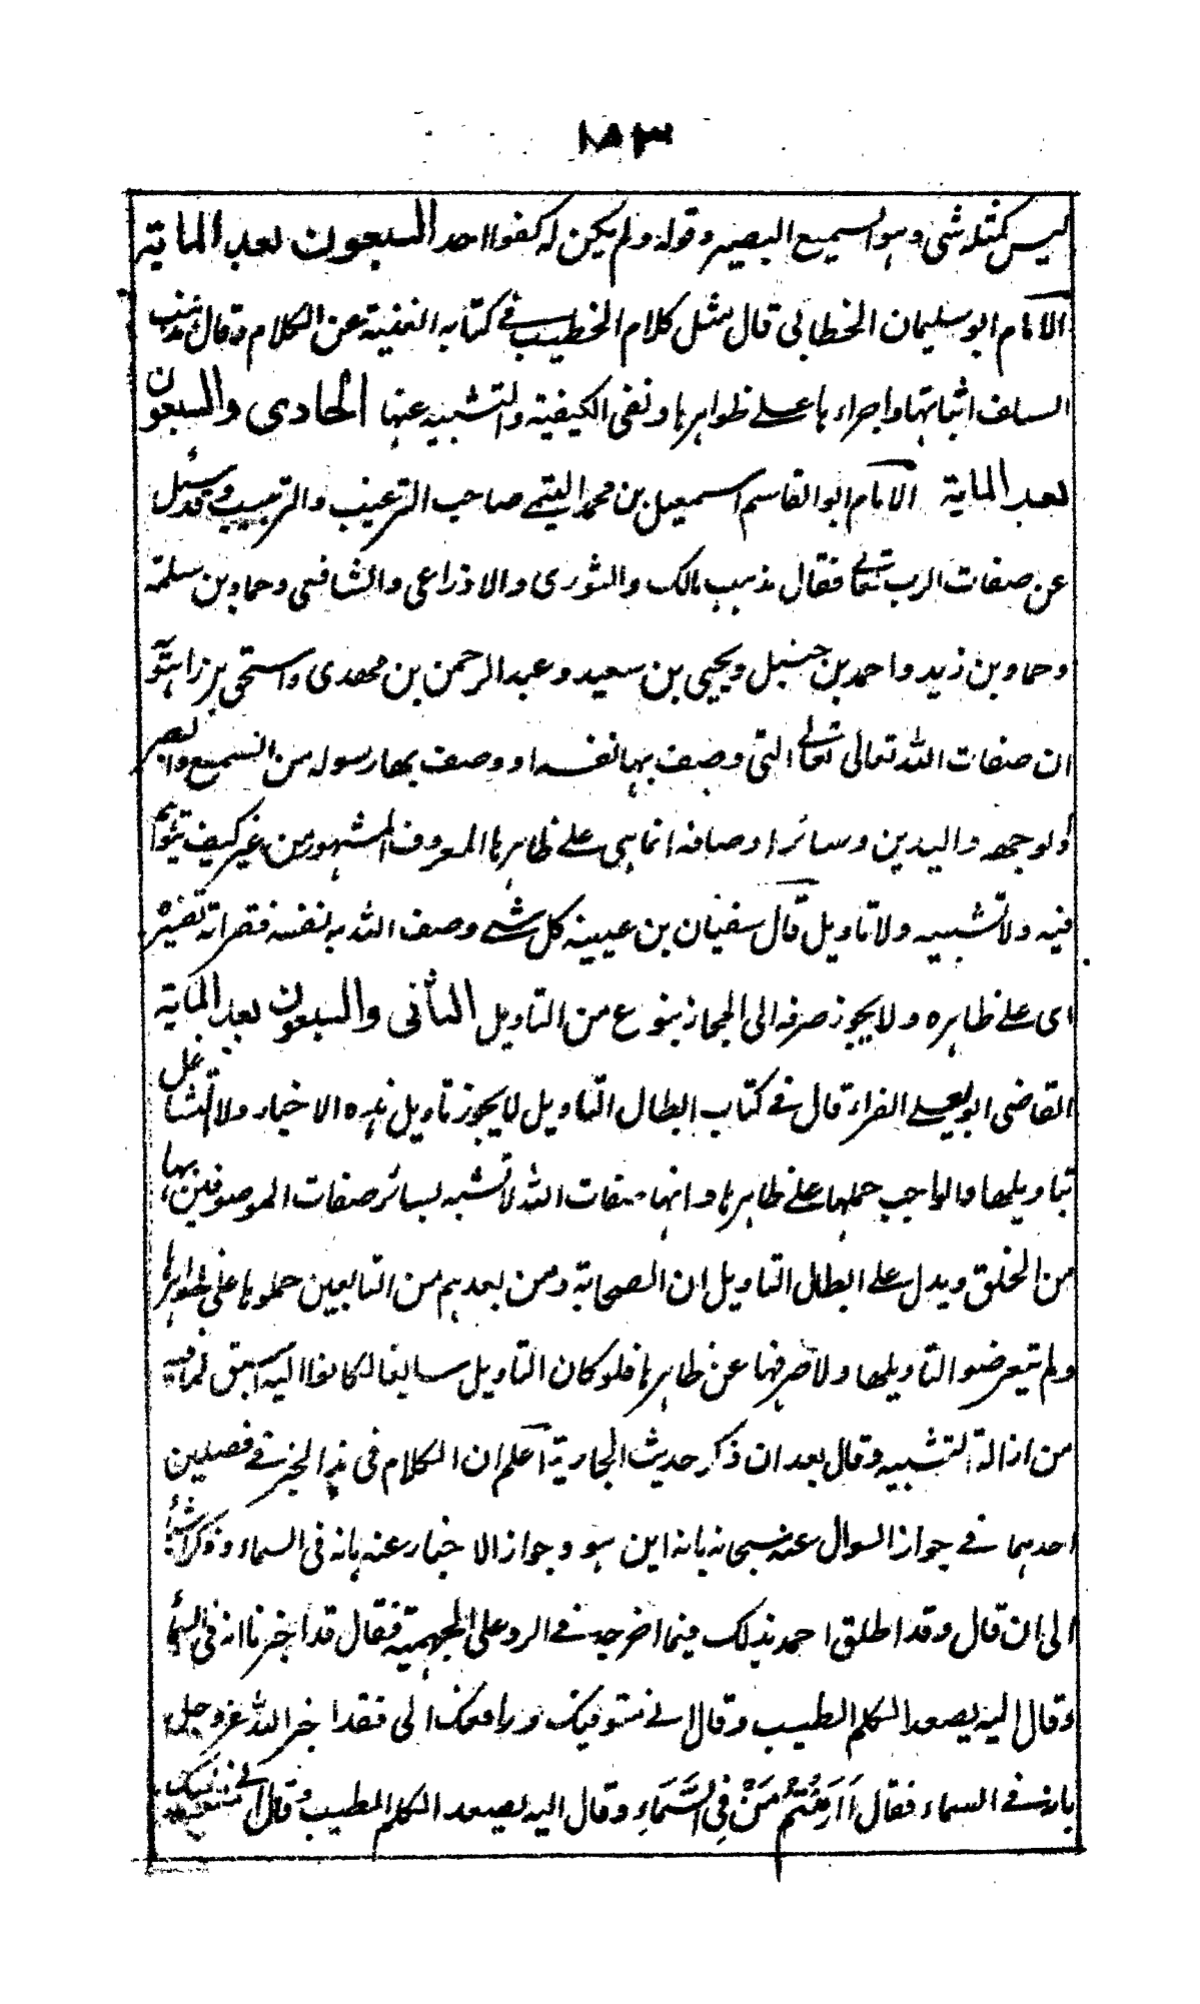 ١٨٣
ليس كمثله شى وهو السميع البصير وقوله ولم يكن له كفوا احد السبعون بعد الماية
الامام ابو سليمان الخطابى قال مثل كلام الخطيب فى كتابه الغنية عن الكلام وقال مذهب
السلف اثباتها واجراءها على ظواهرها ونفى الكيفية والتشبيه عنها الحادى والسبعون
بعد الماية الامام ابو القاسم اسمعيل بن محمد التيمى صاحب الترغيب والترهيب وقد سئل
عن صفات الرب تعالى فقال مذهب مالك والثورى والاوزاعى والشافعى وحماد بن سلمة
وحماد بن زيد واحمد بن حنبل ويحيى بن سعيد وعبد الرحمن بن مهدى واسحق بن راهويه
ان صفات الله تعالى تعالى التى وصف بها نفسه او وصف بها رسوله من السميع والبصر
والوجه واليدين وسائر اوصافه انما هى على ظاهرها المعروف المشهور من غير كيف يتوهم
فيه ولا تشبيه ولا تاويل قال سفيان بن عيينه كل شى وصف الله به نفسه فقراته تفسيره
اى على ظاهره ولا يجوز صرفه الى المجاز بنوع من التاويل الثانى والسبعون بعد الماية
القاضى ابو يعلى الفراء قال فى كتاب ابطال التاويل لا يجوز تاويل هذه الاخبار ولا التشاغل
بتاويلها والواجب حملها على ظاهرها وانها صفات الله لا تشبه بسائر صفات الموصوفين بها
من الخلق ويدل على ابطال التاويل ان الصحابة ومن بعدهم من التابعين حملوها على ظواهرها
ولم يتعرضوا لتاويلها ولا صرفها عن ظاهرها فلو كان التاويل سايغا لكانوا اليه اسبق لما فيه
من ازالة التشبيه وقال بعد ان ذكر حديث الجارية اعلم ان الكلام فى هذا الخبر فى فصلين
احدهما فى جواز السوال عنه سبحانه بانه اين هو وجواز الاخبار عنه بانه فى السماء وذكر اشياء
الى ان قال وقد اطلق احمد بذلك فيما اخرجه فى الرد على الجهمية فقال قد اخبرنا انه فى السماء
وقال اليه يصعد الكلم الطيب وقال انى متوفيك ورافعك الى فقد اخبر الله عز وجل
بانه فى السماء فقال أَاَمِنْتُمْ مَنْ فِى السَّمَاءِ وقال اليه يصعد الكلم الطيب وقال انى متوفيك